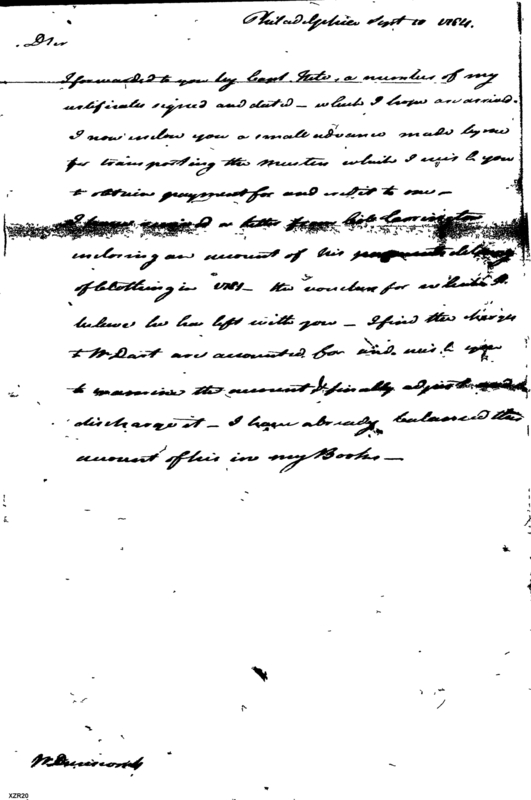 Philadelphia Sept 10 1784.
DSir
I forwarded to you by Capt. a number of my
certificates signed and dated – which I hope are arrived.
I now inclose you a small advance made by me
for transporting the Musters which I wish you
to obtain payment for and remit to me –
I have received a letter from Col. Carrington
inclosing an account of his delivery
of Cloathing in 1781 – the vouchers for which I
believe he has left with you – I find the charges
to Wm Dart are accounted for and wish you
to examine the account & finally adjust and
discharge it – I have already balanced this
account of his in my Books –
Wm Dunscomb
XZR20